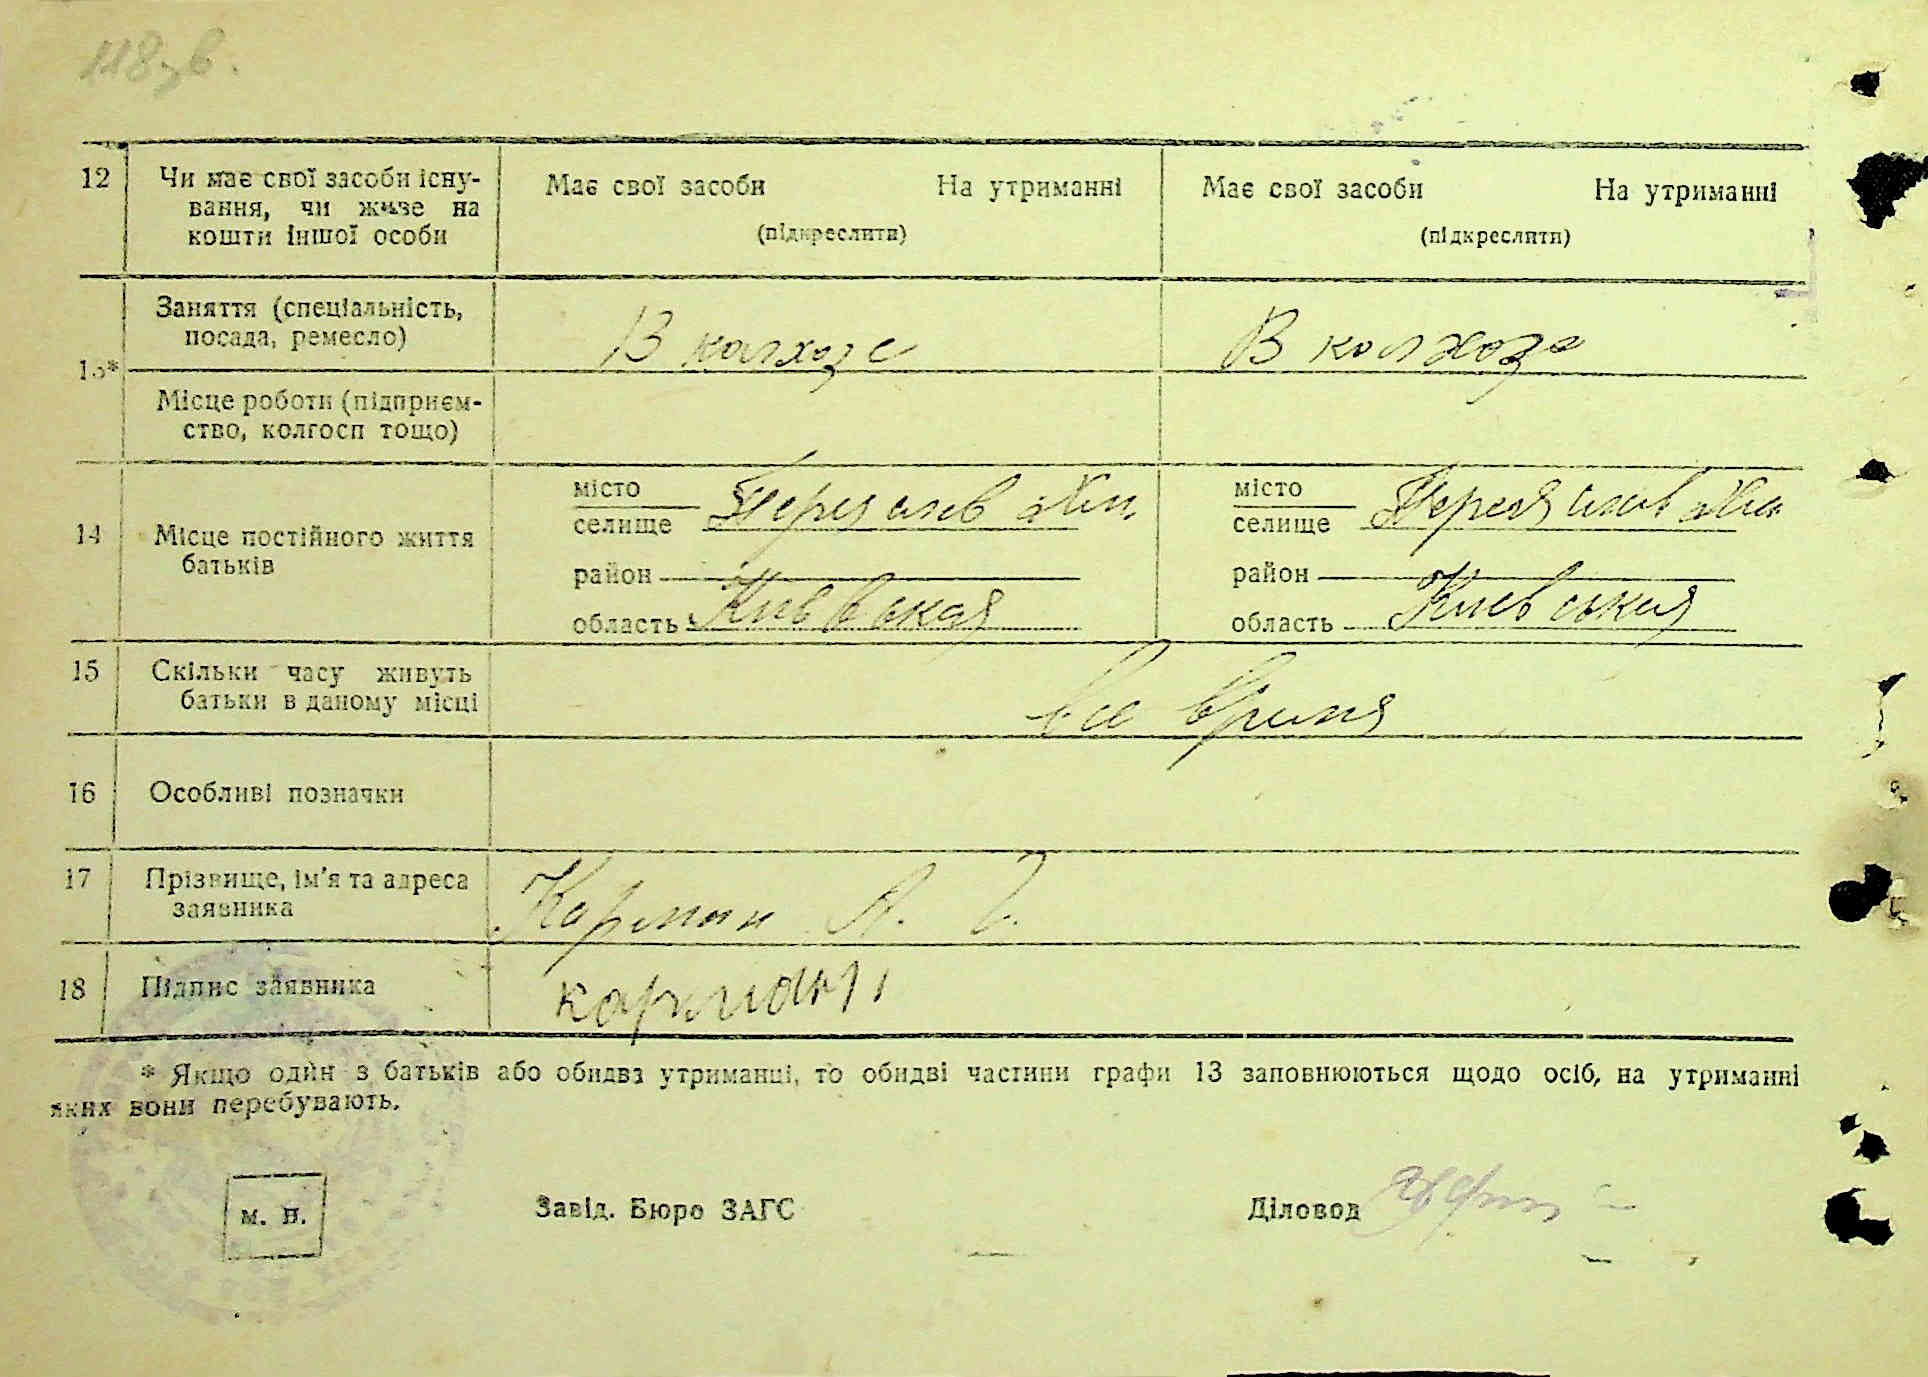 118зв.
12 Чи має свої засоби існу- Має свої засоби На утриманні Має свої засоби На утриманні
вання, чи живе на
кошти іншої особи (підкреслити) (підкреслити)
13* Заняття (спеціальність, В колхозе В колхозе
посада, ремесло)
Місце роботи (підприєм-
ство, колгосп тощо)
14 Місце постійного життя
батьків
місто
селище
район
область Киевская
місто
селище
район
область Киевская
15 Скільки часу живуть все время
батьки в даному місці
16 Особливі позначки
17 Прізвище, ім'я та адреса Карман А.
заявника
18 Підпис заявника карман
* Якщо один з батьків або обидва утриманці, то обидві частини графи 13 заповнюються щодо осіб, на утриманні
яких вони перебувають.
м. п. Завід. Бюро ЗАГС Діловод